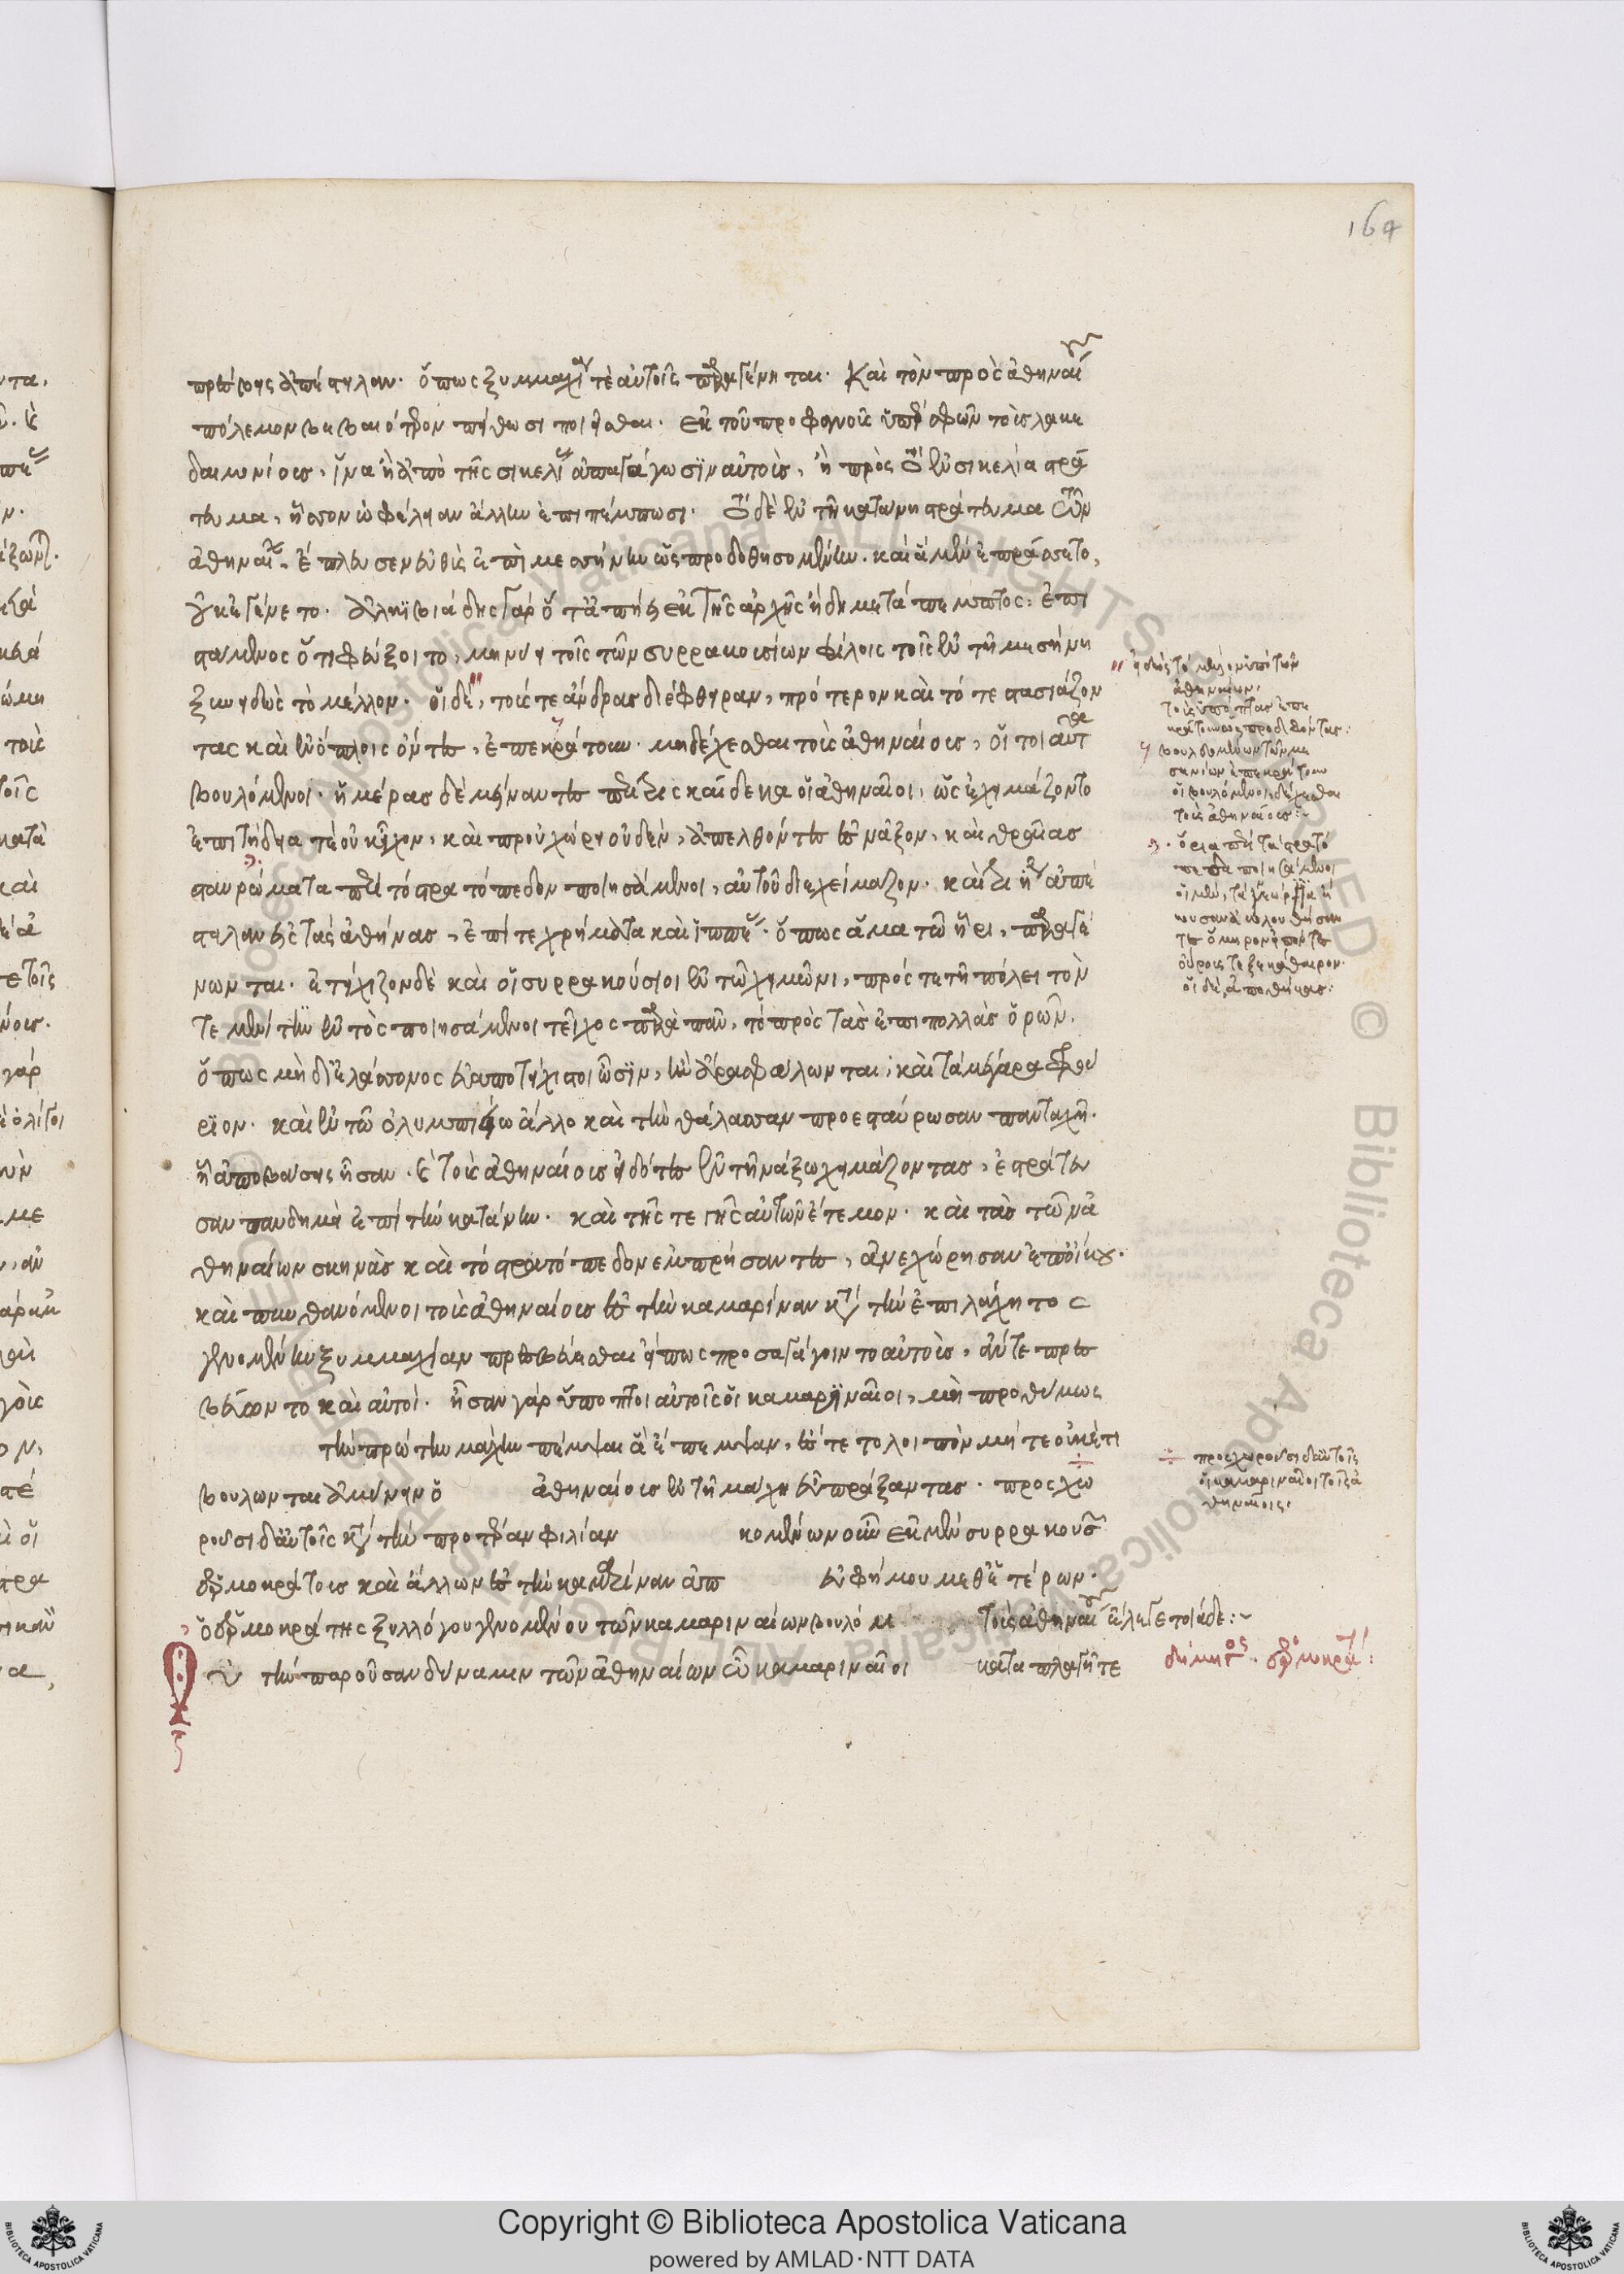 164
πρέσβεις ἀπέστειλαν. ὅπως ξυμμαχία τὲ αὐτοῖς παραγένηται. Καὶ τὸν πρὸς ἀθηναίους
πόλεμον βεβαιότερον πείθωσι ποιεῖσθαι. ἐκ τοῦ προφανοῦς ὑπὲρ σφῶν τοὺς λακε
δαιμονίους, ἵνα ἢ ἀπὸ τῆς σικελίας ἀπαγάγωσιν αὐτοὺς, ἢ πρὸς τὸ ἐν σικελία στρά
τευμα, ἧσσον ὠφέλειαν ἄλλην ἐπιπέμπωσι. Τὸ δὲ ἐν τῆ κατάνη στράτευμα τῶν
ἀθηναίων. ἔπλευσεν εὐθὺς ἐπὶ μεσήνην ὡς προδοθησομένην. καὶ ἃ μὲν ἐπράσσετο,
οὐκ ἐγένετο. ἀλκιβιάδης γὰρ ὅτ' ἀπήει ἐκ τῆς ἀρχῆς ἤδη μετάπεμπτος. ἐπι
στάμενος ὅτι φεύξοιτο, μηνύει τοῖς τῶν συρρακοσίων φίλοις τοῖς ἐν τῆ μεσήνη
ξυνειδὼς τὸ μέλλον. οἱ δὲ, τούς τε ἄνδρας διέφθειραν, πρότερον καὶ τότε στασιάζον
τας καὶ ἐν ὅπλοις ὄντες, ἐπεκράτουν. μὴ δέχεσθαι τοὺς ἀθηναίους, οἱ ταῦτα
βουλόμενοι. ἡμέρας δὲ μείναντες περὶ τρεῖς καὶ δέκα οἱ ἀθηναῖοι, ὡς ἐχειμάζοντο
ἐπιτήδεια τε οὐκ εἶχον, καὶ προὐχώρει οὐδέν, ἀπελθόντες ἐς νάξον, καὶ θρᾶκας
σταυρώματα περὶ τὸ στρατόπεδον ποιησάμενοι, αὐτοῦ διεχείμαζον. καὶ τριήρη ἀπέ
στειλαν ἐς τὰς ἀθήνας, ἐπί τε χρήματα καὶ ἱππέας. ὅπως ἅμα τῶ ἦρι, παραγέ
νωνται. ἐτείχιζον δὲ καὶ οἱ συρρακούσιοι ἐν τῶ χειμῶνι, πρός τε τῆ πόλει τὸν
τεμενίτην ἐντὸς ποιησάμενοι τεῖχος παρὰ πᾶν, τὸ πρὸς τὰς ἐπιπολλὰς ὁρῶν.
ὅπως μὴ δι' ἐλάσσονος εὐαποτείχιστοι ὦσιν, ἢν ἄρα σφάλωνται, καὶ τὰ μέγαρα φρού
ριον. καὶ ἐν τῶ ὀλυμπιείω ἄλλο καὶ τὴν θάλασσαν προεσταύρωσαν πανταχῆ.
ἧ ἀποβάσεις ἦσαν. καὶ τοὺς ἀθηναίους εἰδότες ἐν τῆ νάξω χειμάζοντας, ἐστράτευ
σαν πανδημεὶ ἐπὶ τὴν κατάνην. καὶ τῆς τε γῆς αὐτῶν ἔτεμον. καὶ τὰς τῶν ἀ
θηναίων σκηνὰς καὶ τὸ στρατόπεδον ἐμπρήσαντες, ἀνεχώρησαν ἐπ' οἴκου.
καὶ πυνθανόμενοι τοὺς ἀθηναίους ἐς τὴν καμαρίναν κατὰ τὴν ἐπὶ λάχητος
γενομένην ξυμμαχίαν πρεσβεύεσθαι εἴπως προσαγάγοιντο αὐτοὺς, ἀντεπρεσ
βεύοντο καὶ αὐτοί. ἦσαν γὰρ ὕποπτοι αὐτοῖς οἱ καμαριναῖοι, μὴ προθύμως
τὴν πρώτην μάχην πέμψαι ἃ ἔπεμψαν, ἔς τε τὸ λοιπὸν μήτε οὐκέτι
βούλωνται ἀμύνειν ὁ ἀθηναίους ἐν τῆ μάχη εὖ πράξαντας. προσχω
ροῦσι δ' αὐτοῖς κατὰ τὴν προτέραν φιλίαν κομένων οὖν ἐκ μὲν συρρακουσ
ἑρμοκράτους καὶ ἄλλων ἐς τὴν καμαρίναν ἀπ εὐφήμου μεθ' ἑτέρων.
ὁ ἑρμοκράτης ξυλλόγου γενομένου τῶν καμαριναίων βουλόμε τοὺς ἀθηναίους ἔλεγε τοιάδε:~
Οὐ τὴν παροῦσαν δύναμιν τῶν ἀθηναίων ὦ καμαριναῖοι καταπλαγῆτε
εἰδὼς τὸ μέλλον ὑπὸ τῶν
ἀθηναίων,
τοὺς ὑπόπτας ἐπε
κράτουν ὡς προδιδόντας:
βουλομένων τῶν με
σηνίων ἐπεκράτουν
οἱ βουλόμενοι, δέχεσθαι
τοὺς ἀθηναίους:~
ὅρια περὶ τὰ στρατό
πεδα ποιησάμενοι
προσχωροῦσι δ' αὐτοῖς
οἱ καμαριναῖοι τοῖς ἀ
θηναίοις:
δημηγορία ἑρμοκράτους:
Copyright © Biblioteca Apostolica Vaticana
powered by AMLAD·NTT DATA